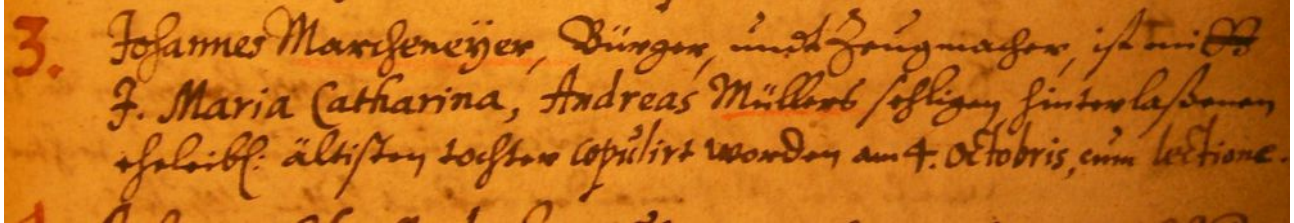 3. Johannes Marcheneÿer, Bürger, undt Zeugmacher, ist mitt
J. Maria Catharina, Andreas Müllers sehligen hinterlaßenen
eheleibl: ältisten tochter copulirt worden am 4. Octobris, cum lectione.